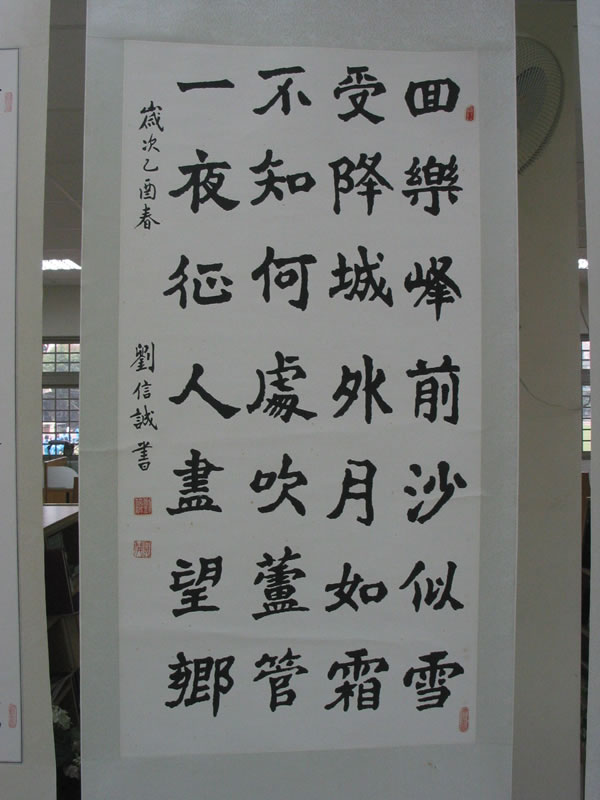 回樂峰前沙似雪
受降城外月如霜
不知何處吹蘆管
一夜征人盡望鄉
歲次乙酉春
劉信誠書